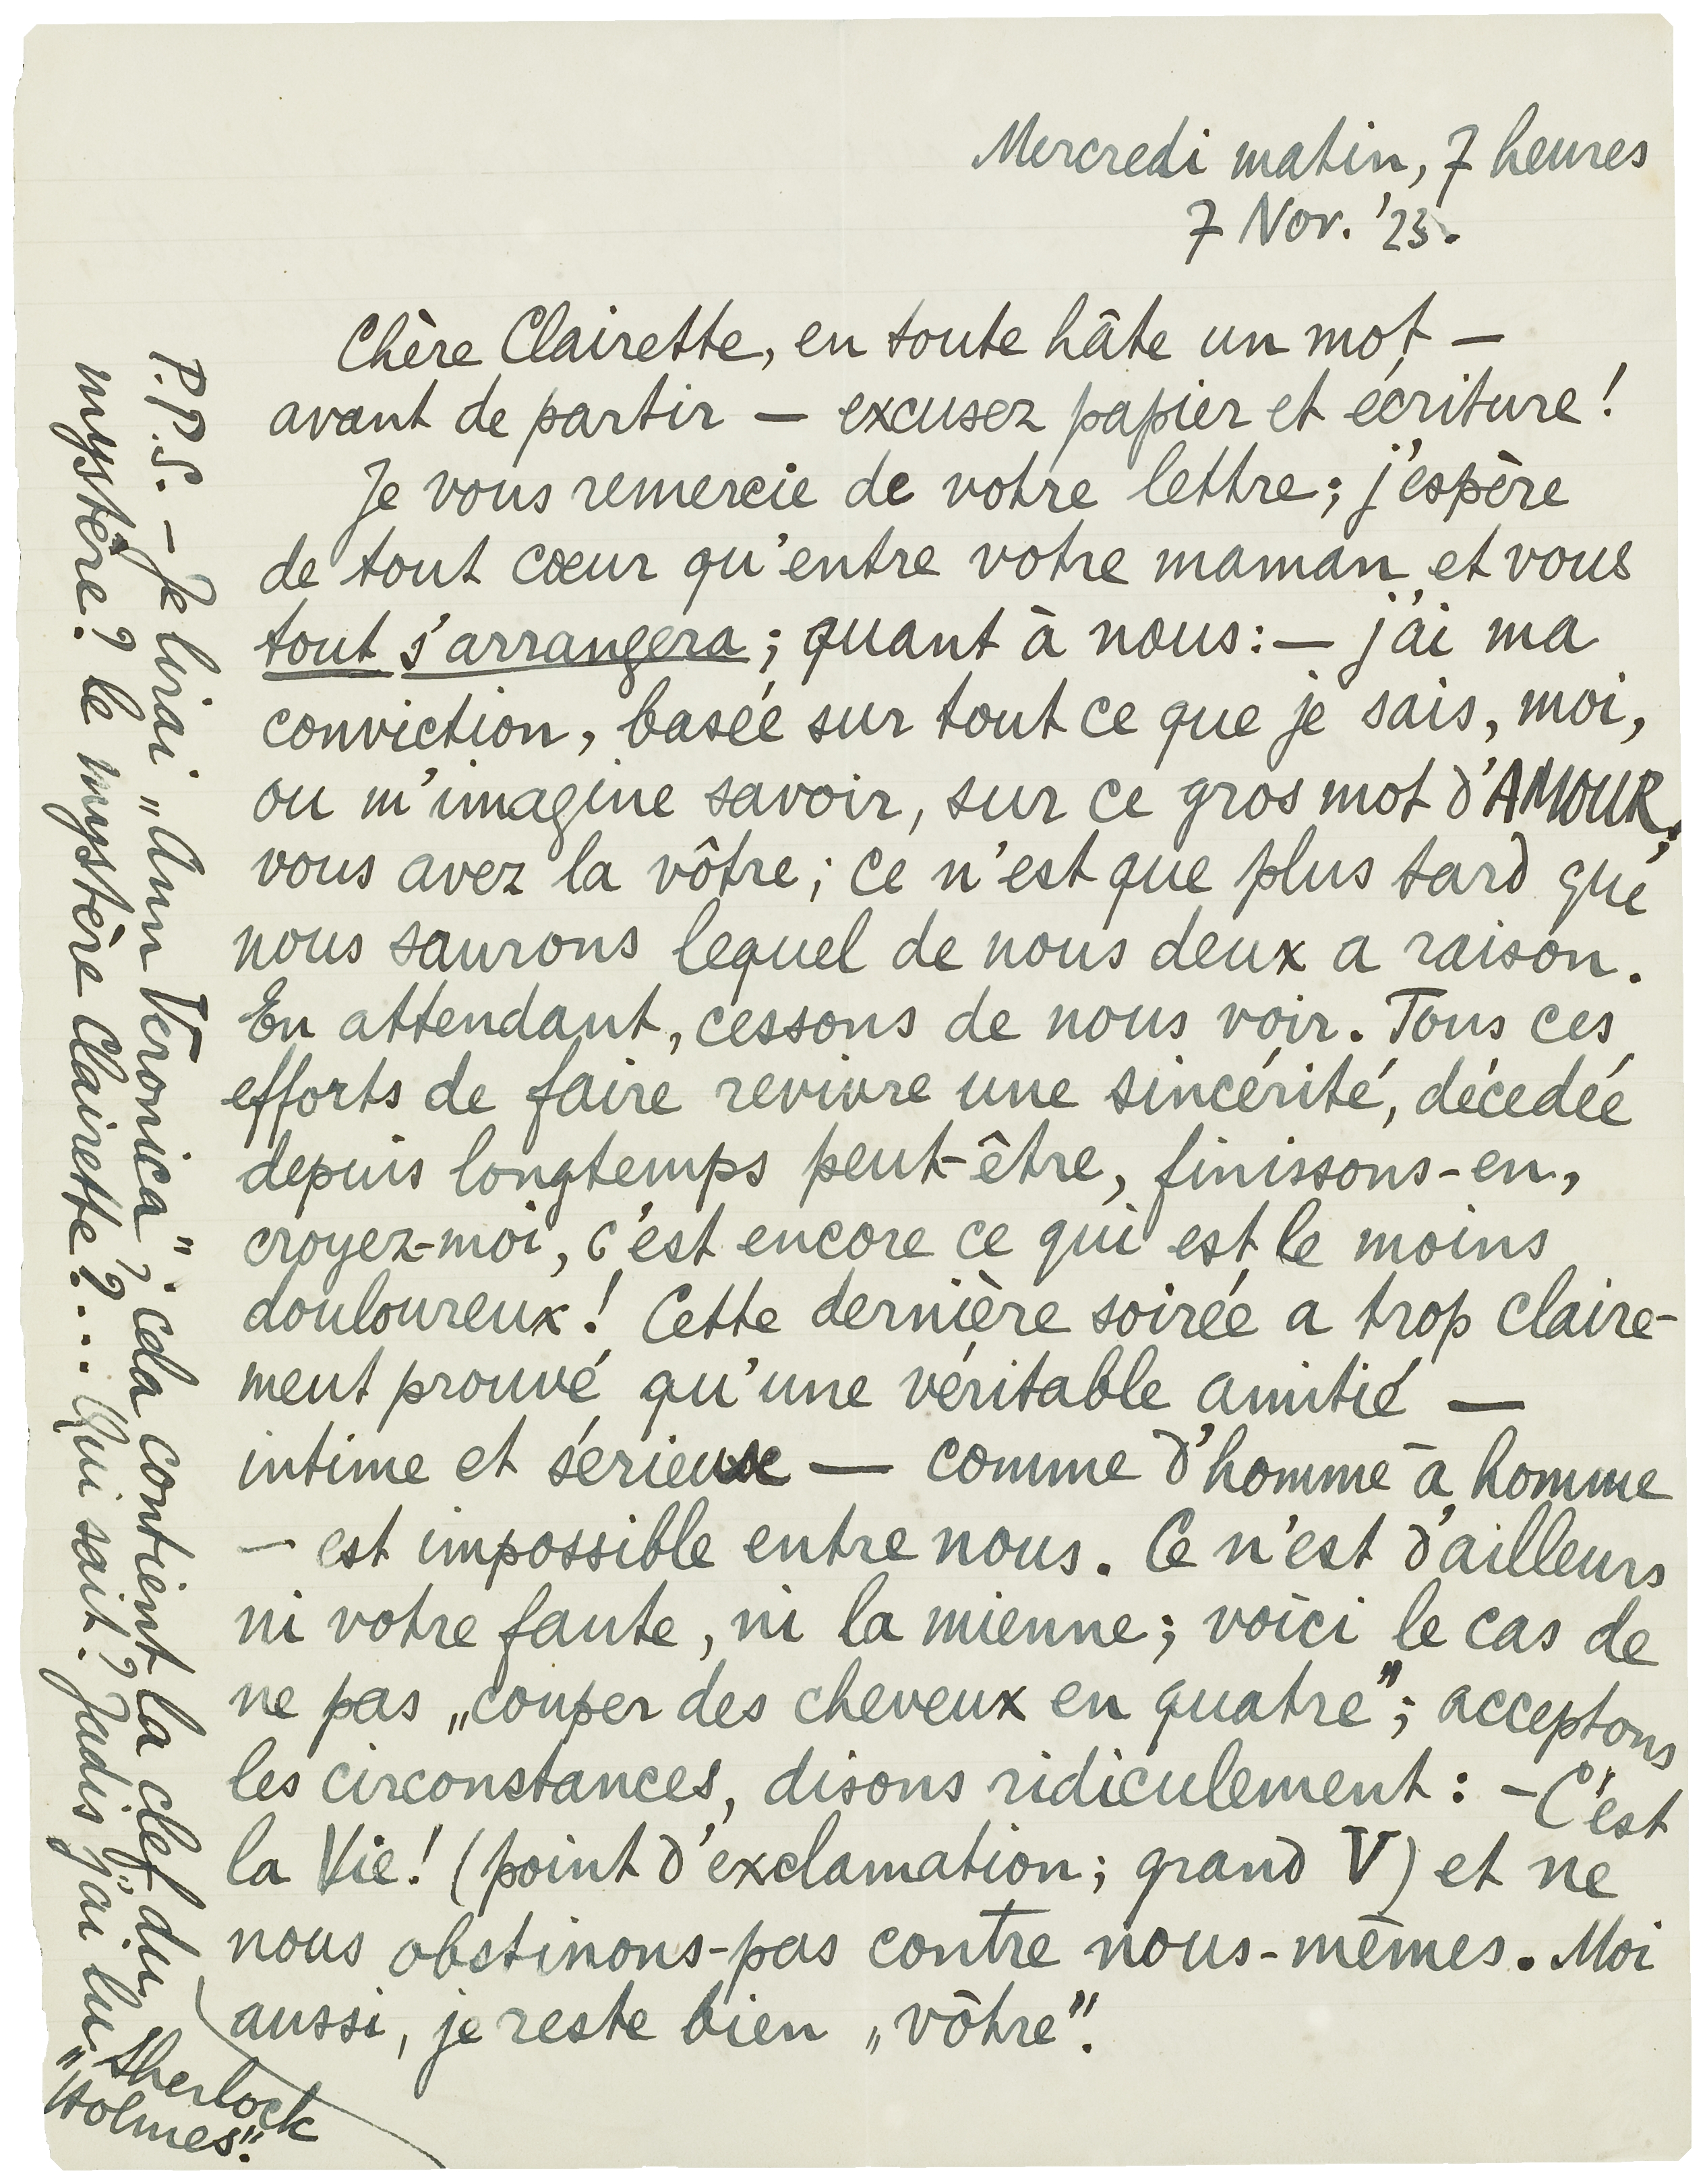 Mercredi matin, 7 heures
7 Nov. '23.
Chère Clairette, en toute hâte un mot —
avant de partir — excusez papier et écriture!
Je vous remercie de votre lettre; j'espère
de tout cœur qu'entre votre maman et vous
tout s'arrangera; quant à nous: — j'ai ma
conviction, basée sur tout ce que je sais, moi,
ou m'imagine savoir, sur ce gros mot d'AMOUR;
vous avez la vôtre; ce n'est que plus tard que
nous saurons lequel de nous deux a raison.
En attendant, cessons de nous voir. Tous ces
efforts de faire revivre une sincérité, décedée
depuis longtemps peut-être, finissons-en,
croyez-moi, c'est encore ce qui est le moins
douloureux! Cette dernière soirée a trop claire-
ment prouvé qu'une véritable amitié —
intime et sérieuse — comme d'homme à homme
— est impossible entre nous. Ce n'est d'ailleurs
ni votre faute, ni la mienne; voici le cas de
ne pas „couper des cheveux en quatre"; acceptons
les circonstances, disons ridiculement: — C'est
la Vie! (point d'exclamation; grand V) et ne
nous obstinons-pas contre nous-mêmes. Moi
aussi, je reste bien „vôtre".
P.P.S. — Je lirai „Ann Veronica"; cela contient la clef du
mystère? le mystère Clairette?... Qui sait? Jadis j'ai lu
„Sherlock
Holmes".